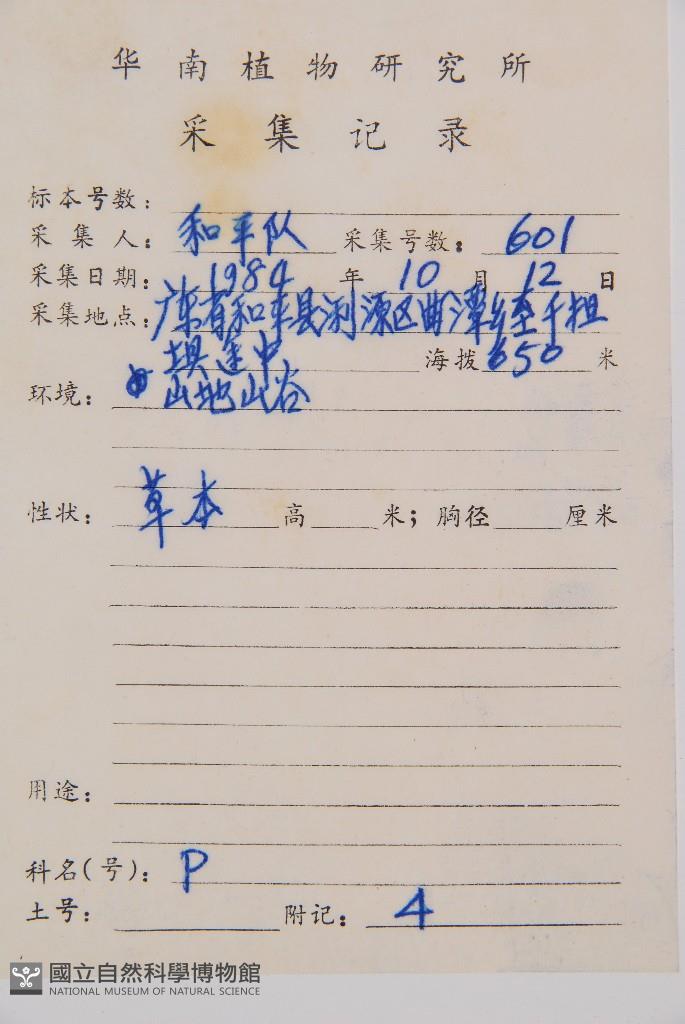 华南植物研究所
采集记录
标本号数：
采集人：和平队 采集号数：601
采集日期：1984年10月12日
采集地点：广东省和平县浰源区曲潭乡至千担
埧途中 海拨650米
环境：山地山谷
性状：草本 高 米；胸径 厘米
用途：
科名(号)：P
土号： 附记：4
國立自然科學博物館
NATIONAL MUSEUM OF NATURAL SCIENCE